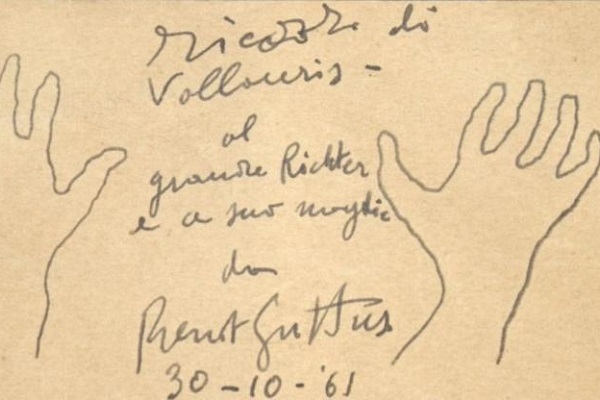 ricordo di
Vallauris -
al
grande Richter
e a suo moglie
da
Renato Guttuso
30-10-'61